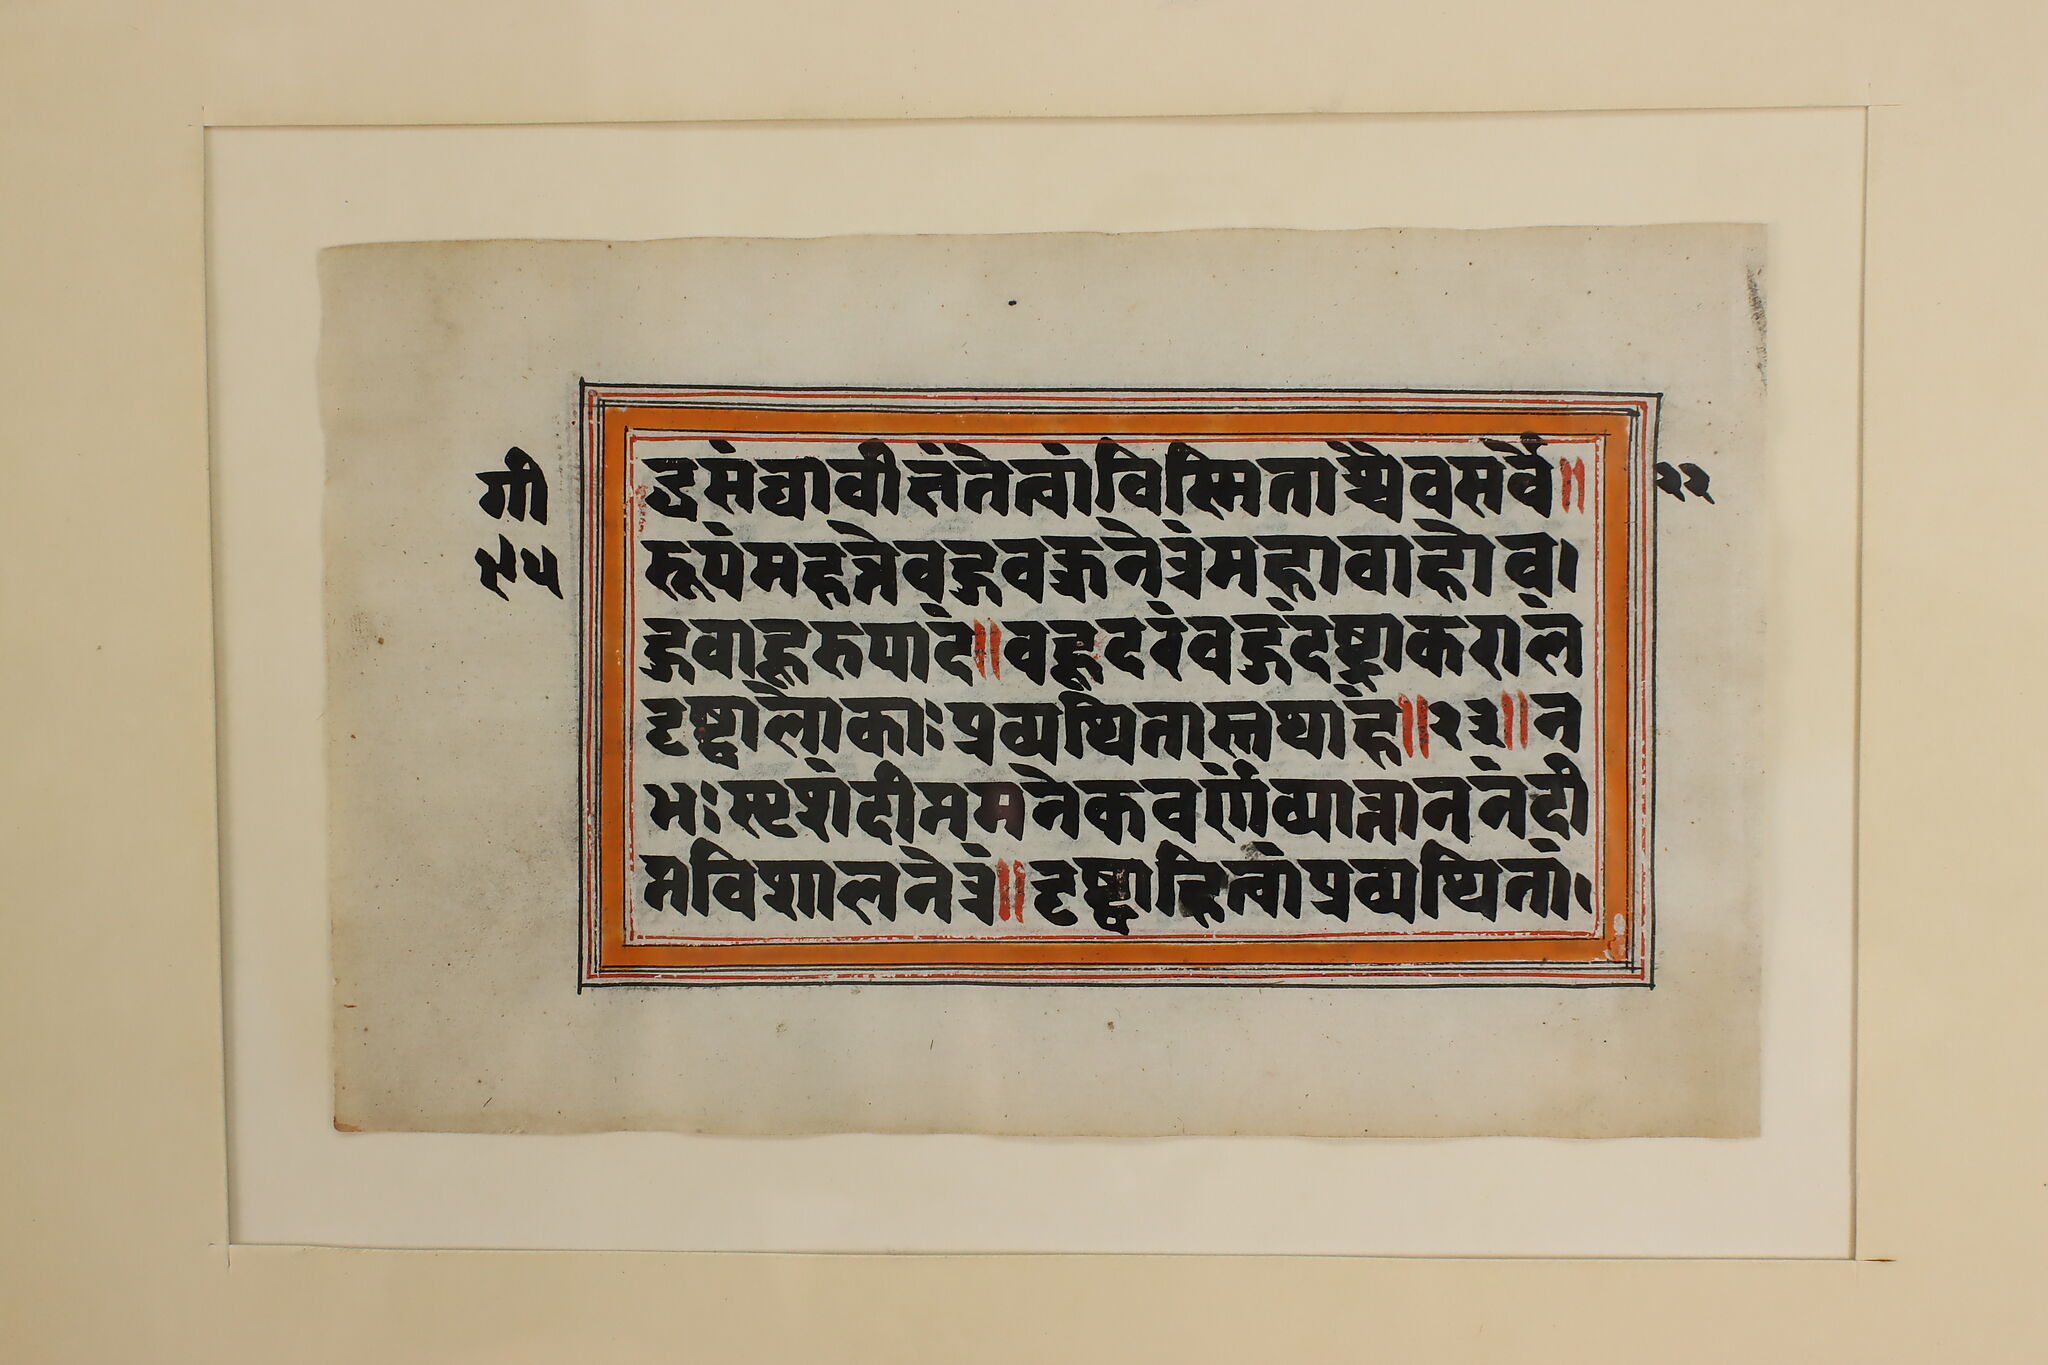 द्धसंघावीक्षंतेत्वांविस्मिताश्चैवसर्वे॥
२२
रूपंमहत्तेबहुवक्त्रनेत्रंमहाबाहोब।
गी
हुबाहूरुपादं॥बहूदरंबहुदंष्ट्राकरालं
दृष्ट्वालोकाःप्रव्यथितास्तथाहं॥२३॥न
भःस्पृशंदीप्तमनेकवर्णंव्यात्ताननंदी
प्तविशालनेत्रं॥दृष्ट्वाहित्वांप्रव्यथितां।